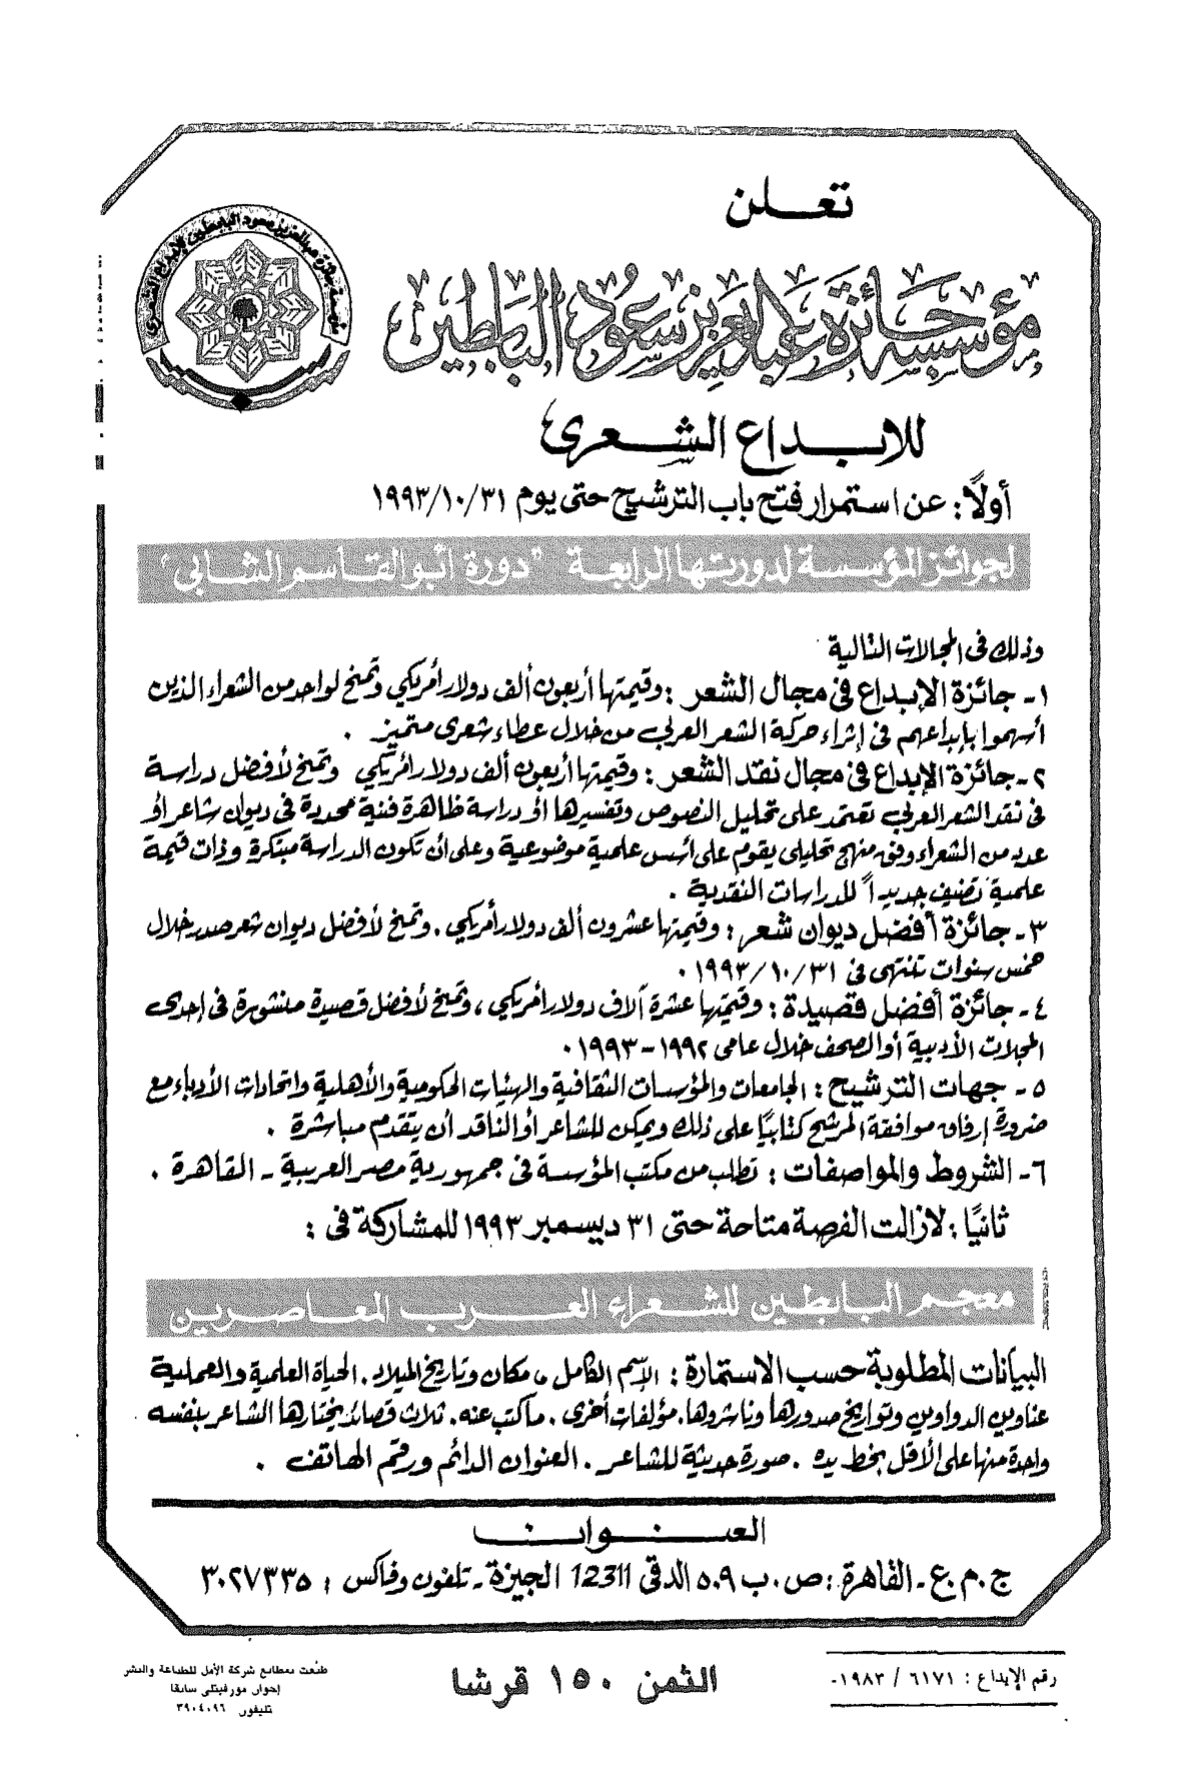 تعلن
مؤسسة جائزة عبدالعزيز سعود البابطين
للابداع الشعرى
أولاً: عن استمرار فتح باب الترشيح حتى يوم ١٩٩٣/١٠/٣١
لجوائز المؤسسة لدورتها الرابعة "دورة أبو القاسم الشابى"
وذلك فى المجالات التالية
١- جائزة الإبداع فى مجال الشعر : وقيمتها أربعون ألف دولار أمريكي وتمنح لواحد من الشعراء الذين
أسهموا بإبداعهم فى إثراء حركة الشعر العربي من خلال عطاء شعرى متميز .
٢- جائزة الإبداع فى مجال نقد الشعر : وقيمتها أربعون ألف دولار أمريكي وتمنح لأفضل دراسة
فى نقد الشعر العربي تعتمد على تحليل النصوص وتفسيرها أو دراسة ظاهرة فنية محددة فى ديوان شاعر أو
عدد من الشعراء وفق منهج تحليلى يقوم على أسس علمية موضوعية وعلى أن تكون الدراسة مبتكرة وذات قيمة
علمية تضيف جديداً للدراسات النقدية .
٣- جائزة أفضل ديوان شعر : وقيمتها عشرون ألف دولار أمريكي . وتمنح لأفضل ديوان شعر صدر خلال
خمس سنوات تنتهى فى ١٩٩٣/١٠/٣١ .
٤- جائزة أفضل قصيدة : وقيمتها عشرة آلاف دولار أمريكي ، وتمنح لأفضل قصيدة منشورة فى إحدى
المجلات الأدبية أو الصحف خلال عامى ١٩٩٢ - ١٩٩٣ .
٥- جهات الترشيح : الجامعات والمؤسسات الثقافية والهيئات الحكومية والأهلية واتحادات الأدباء مع
ضرورة إرفاق موافقة المرشح كتابيًا على ذلك ويمكن للشاعر أو الناقد أن يتقدم مباشرة .
٦- الشروط والمواصفات : تطلب من مكتب المؤسسة فى جمهورية مصر العربية - القاهرة .
ثانيًا : لازالت الفرصة متاحة حتى ٣١ ديسمبر ١٩٩٣ للمشاركة فى :
معجم البابطين للشعراء العرب المعاصرين
البيانات المطلوبة حسب الاستمارة : الإسم الكامل ، مكان وتاريخ الميلاد . الحياة العلمية والعملية
عناوين الدواوين وتواريخ صدورها وناشروها . مؤلفات أخرى . ماكتب عنه . ثلاث قصائد يختارها الشاعر بنفسه
واحدة منها على الأقل بخط يده . صورة حديثة للشاعر . العنوان الدائم ورقم الهاتف .
العنوان
ج . م . ع - القاهرة : ص . ب ٥٠٩ الدقى 12311 الجيزة - تلفون وفاكس : ٣٠٢٧٣٣٥
رقم الإيداع : ٦١٧١ / ١٩٨٣-
الثمن ١٥٠ قرشا
طبعت بمطابع شركة الأمل للطباعة والنشر
(خوان مورفيتلى سابقا
تليفون ٣٩٠٤٠٩٦